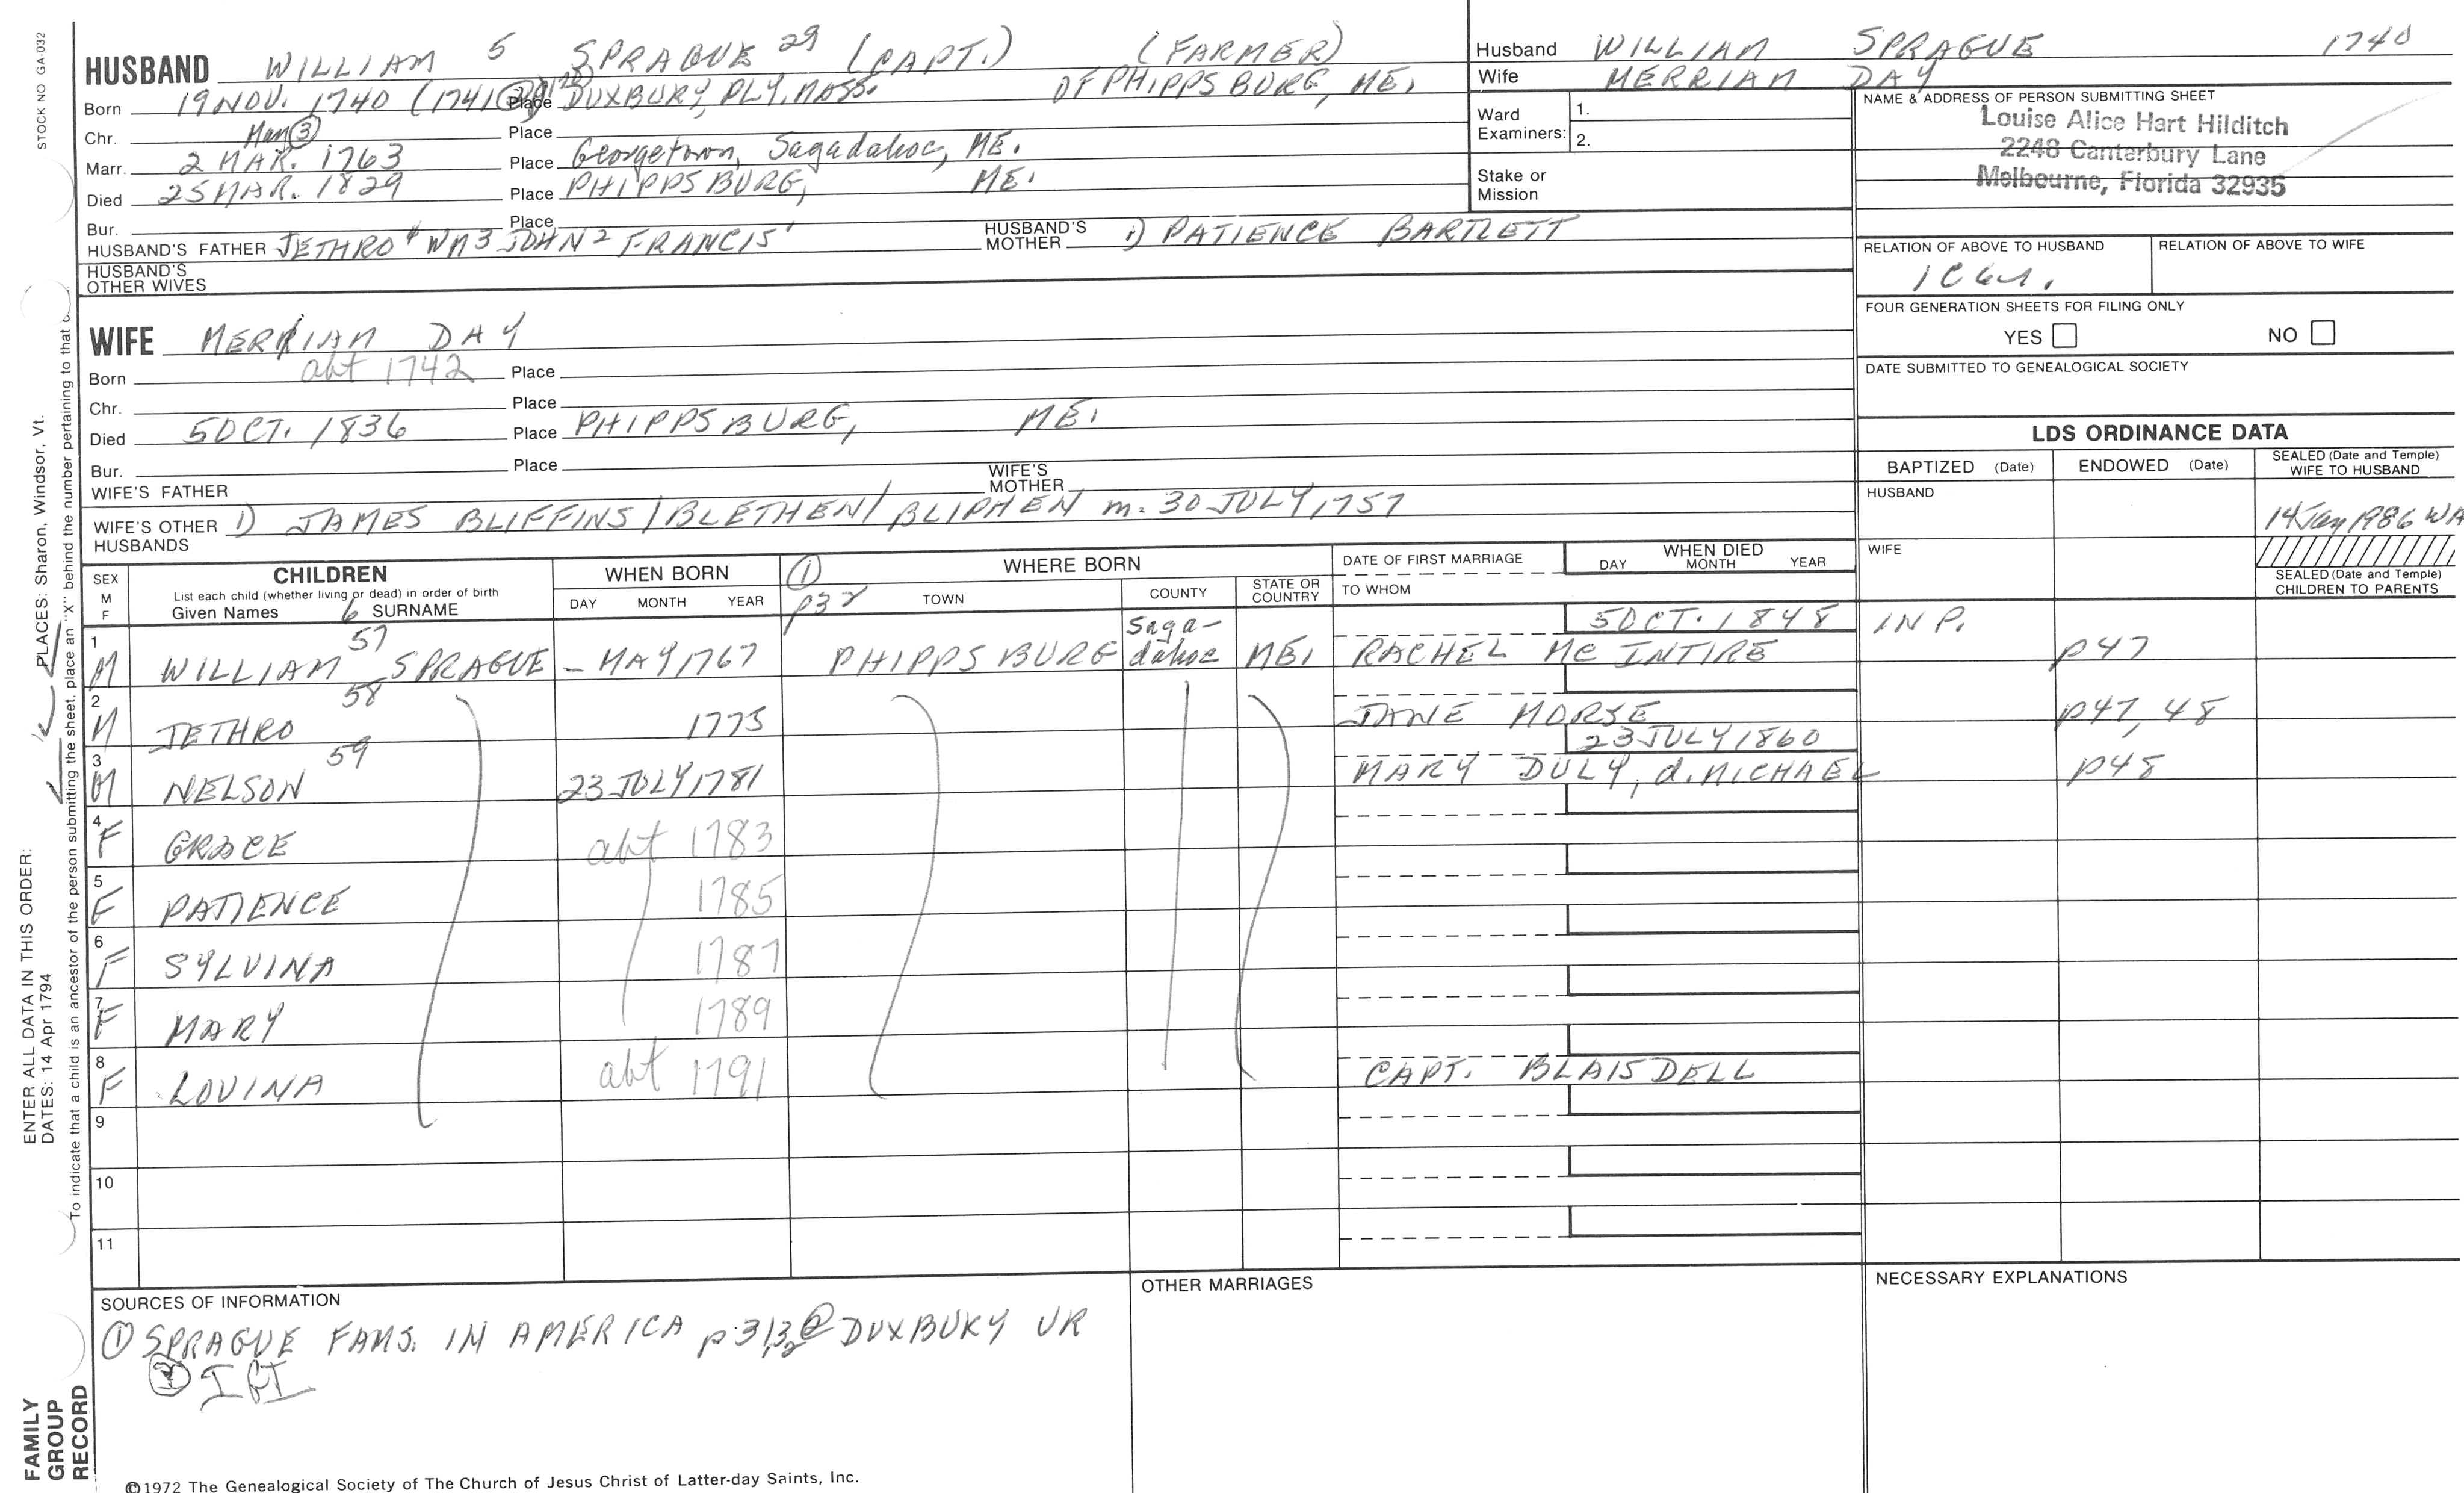 STOCK NO GA-032
HUSBAND WILLIAM 5 SPRAGUE 29 (CAPT.) (FARMER)
Born 19 NOV. 1740 (1741 Place DUXBURY, PLY, MASS. OF PHIPPSBURG, ME.
Chr. Place
Marr. 2 MAR. 1763 Place Georgetown, Sagadahoc, ME.
Died 25 MAR. 1829 Place PHIPPSBURG, ME.
Bur. Place
HUSBAND'S FATHER JETHRO 4 WM 3 JOHN 2 FRANCIS 1 HUSBAND'S MOTHER 1) PATIENCE BARTLETT
HUSBAND'S OTHER WIVES
Husband WILLIAM SPRAGUE 1740
Wife MERRIAM DAY
Ward Examiners: 1.
2.
Stake or Mission
NAME & ADDRESS OF PERSON SUBMITTING SHEET
Louise Alice Hart Hilditch
2248 Canterbury Lane
Melbourne, Florida 32935
RELATION OF ABOVE TO HUSBAND RELATION OF ABOVE TO WIFE
FOUR GENERATION SHEETS FOR FILING ONLY
YES NO
DATE SUBMITTED TO GENEALOGICAL SOCIETY
WIFE MERRIAM DAY
Born abt 1742 Place
Chr. Place
Died 5 OCT. 1836 Place PHIPPSBURG, ME.
Bur. Place
WIFE'S FATHER WIFE'S MOTHER
WIFE'S OTHER HUSBANDS 1) JAMES BLIFFINS/BLETHEN/BLIPHEN m. 30 JULY 1757
LDS ORDINANCE DATA
BAPTIZED (Date) ENDOWED (Date) SEALED (Date and Temple) WIFE TO HUSBAND
HUSBAND 14 Jan 1986 WA
WIFE
SEALED (Date and Temple) CHILDREN TO PARENTS
SEX M F
CHILDREN
List each child (whether living or dead) in order of birth
Given Names 6 SURNAME
WHEN BORN
DAY MONTH YEAR
① p32
WHERE BORN
TOWN COUNTY STATE OR COUNTRY
DATE OF FIRST MARRIAGE
TO WHOM
WHEN DIED
DAY MONTH YEAR
1 M WILLIAM 57 SPRAGUE - MAY 1767 PHIPPSBURG Saga-dahoc ME. RACHEL MC INTIRE 5 OCT. 1848 IN P. p47
2 M JETHRO 58 1775 JANE MORSE p47, 48
3 M NELSON 59 23 JULY 1781 MARY DULY, d. MICHAEL 23 JULY 1860 p48
4 F GRACE abt 1783
5 F PATIENCE 1785
6 F SYLVINA 1787
7 F MARY 1789
8 F LOVINA abt 1791 CAPT. BLAISDELL
9
10
11
SOURCES OF INFORMATION
① SPRAGUE FAMS. IN AMERICA p 31,32 ② DUXBURY VR
③ IGI
OTHER MARRIAGES
NECESSARY EXPLANATIONS
©1972 The Genealogical Society of The Church of Jesus Christ of Latter-day Saints, Inc.
FAMILY GROUP RECORD
ENTER ALL DATA IN THIS ORDER:
DATES: 14 Apr 1794
PLACES: Sharon, Windsor, Vt.
To indicate that a child is an ancestor of the person submitting the sheet, place an "X" behind the number pertaining to that